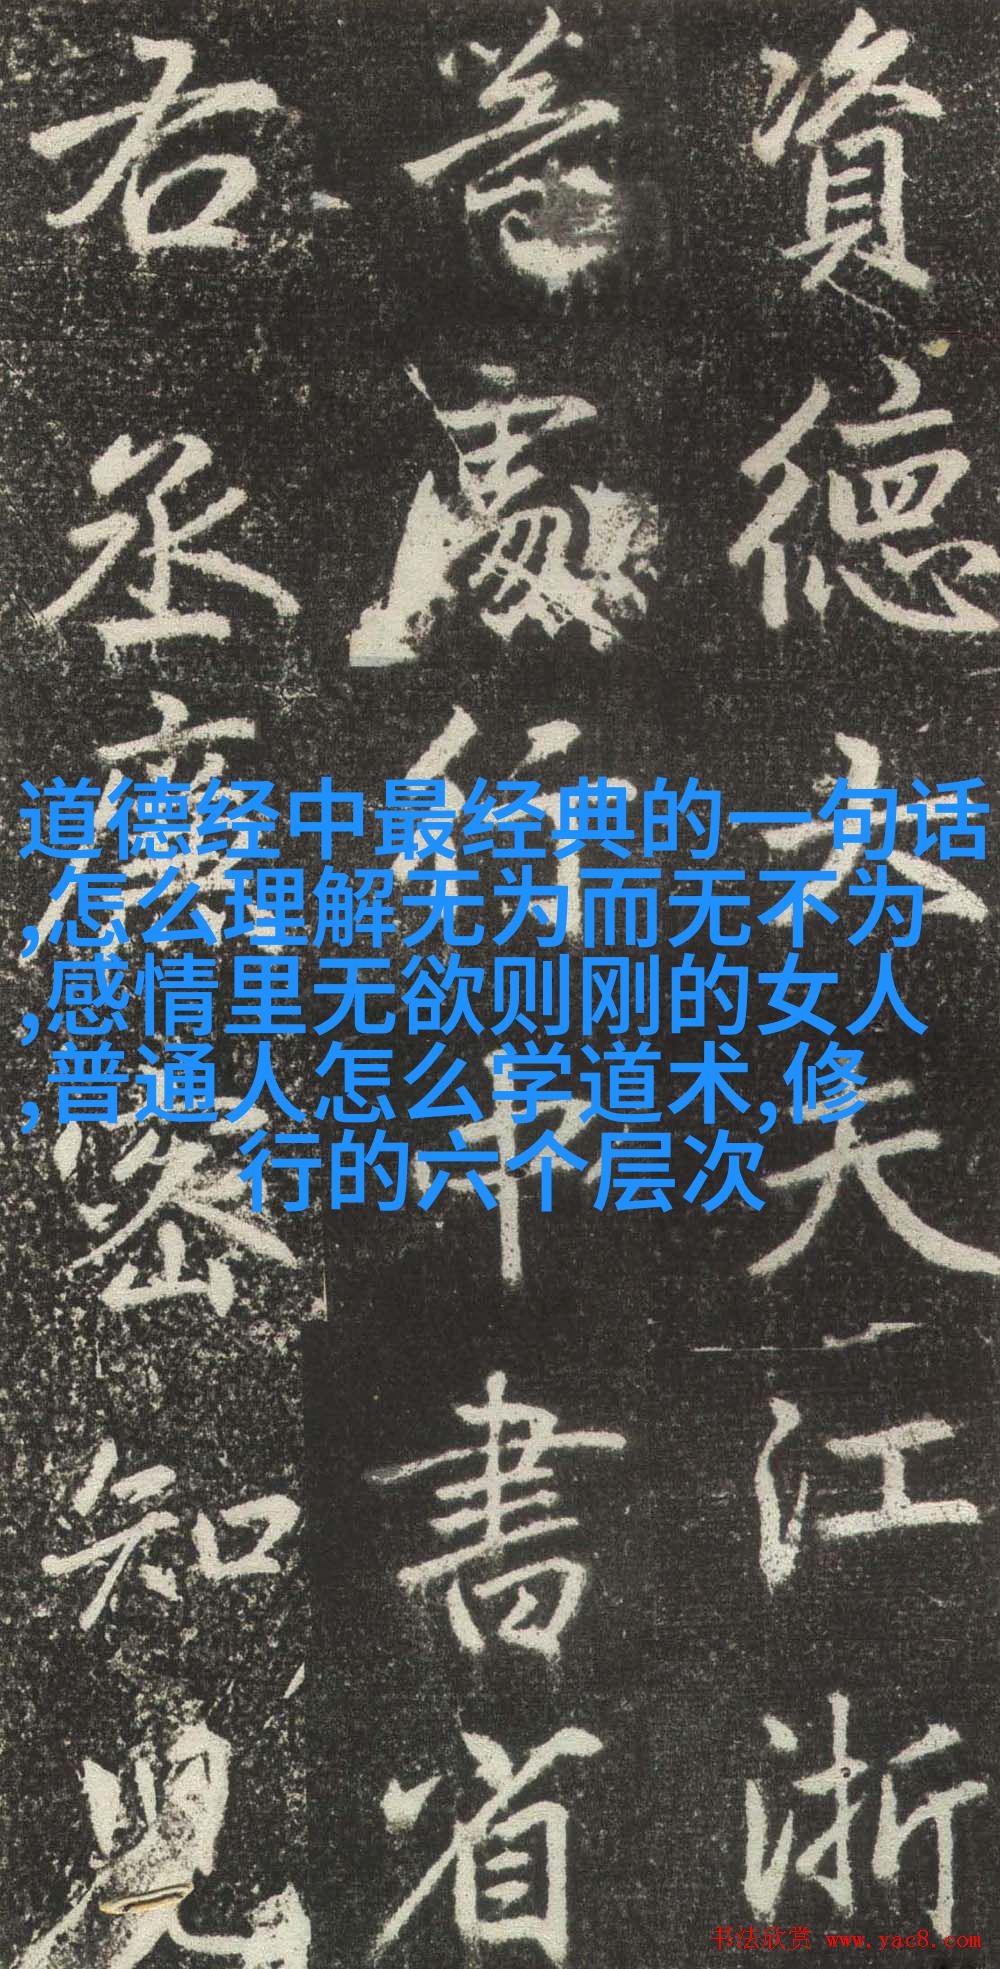 資德大夫江浙
等處行中書省
右丞廉密知兒
道德经中最经典的一句话
,怎么理解无为而无不为
,感情里无欲则刚的女人
,普通人怎么学道术,修
行的六个层次
书法欣赏 www.yac8.com